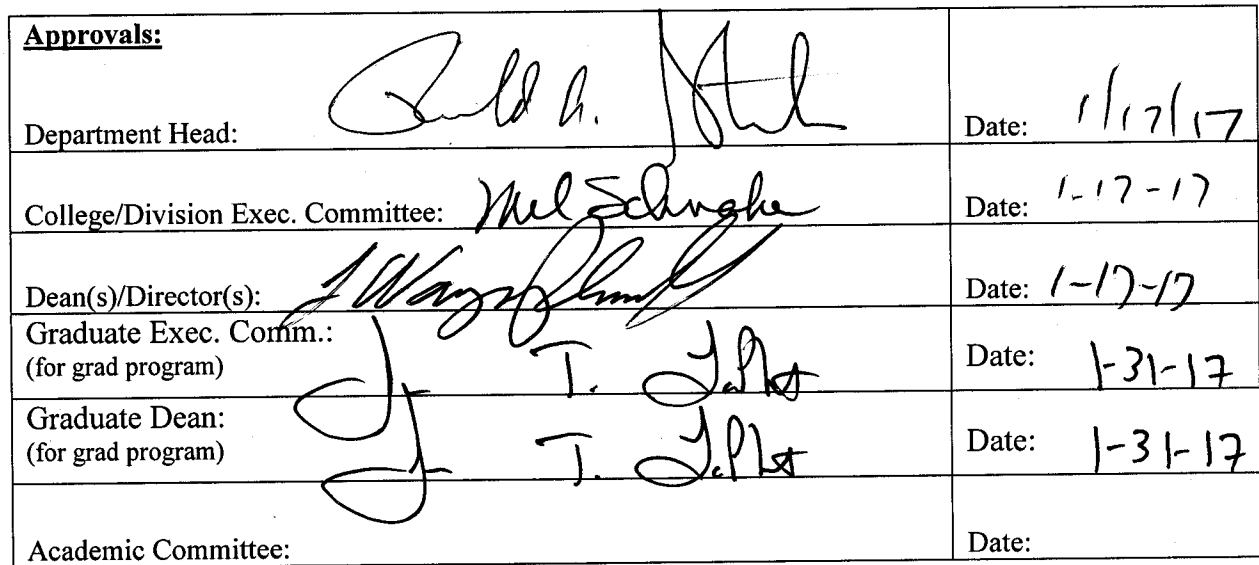 Approvals:
Department Head: A. Date: 1/17/17
College/Division Exec. Committee: Mel Schnake Date: 1-17-17
Dean(s)/Director(s): Wayne Date: 1-17-17
Graduate Exec. Comm.:
(for grad program) T. Date: 1-31-17
Graduate Dean:
(for grad program) T. Date: 1-31-17
Academic Committee: Date: